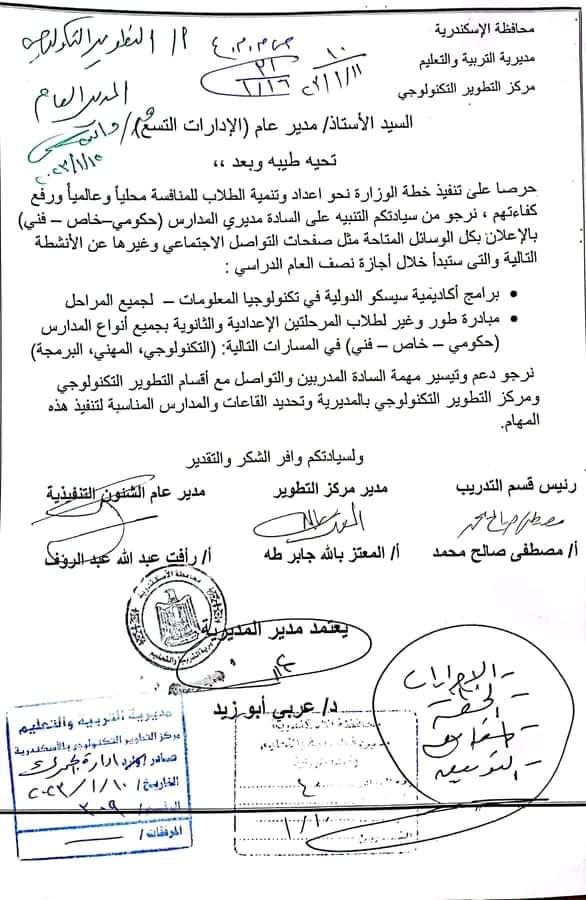 محافظة الإسكندرية
مديرية التربية والتعليم
مركز التطوير التكنولوجي
أ/ التطوير التكنولوجي
المدير العام
٢٠٢٣/١/١٥
١٠
٢٠٢٣/١/١١
٣١
١/١٦
السيد الأستاذ/ مدير عام (الإدارات التسع)
تحيه طيبه وبعد ،،
حرصا على تنفيذ خطة الوزارة نحو اعداد وتنمية الطلاب للمنافسة محلياً وعالمياً ورفع
كفاءتهم ، نرجو من سيادتكم التنبيه على السادة مديري المدارس (حكومي–خاص – فني)
بالإعلان بكل الوسائل المتاحة مثل صفحات التواصل الاجتماعي وغيرها عن الأنشطة
التالية والتى ستبدأ خلال أجازة نصف العام الدراسي :
• برامج أكاديمية سيسكو الدولية في تكنولوجيا المعلومات – لجميع المراحل
• مبادرة طور وغير لطلاب المرحلتين الإعدادية والثانوية بجميع أنواع المدارس
(حكومي – خاص – فني) في المسارات التالية: (التكنولوجي، المهني، البرمجة)
نرجو دعم وتيسير مهمة السادة المدربين والتواصل مع أقسام التطوير التكنولوجي
ومركز التطوير التكنولوجي بالمديرية وتحديد القاعات والمدارس المناسبة لتنفيذ هذه
المهام.
ولسيادتكم وافر الشكر والتقدير
رئيس قسم التدريب
مدير مركز التطوير
مدير عام الشئون التنفيذية
مصطفى صالح محمد
أ/ مصطفى صالح محمد
أ/ المعتز بالله جابر طه
أ/ رأفت عبد الله عبد الرؤف
محافظة الأسكندرية
مديرية التربية والتعليم
يعتمد مدير المديرية
د/ عربي أبو زيد
مديرية التربيه والتعليم
مركز التطوير التكنولوجي بالأسكندرية
صادر ادارة الجمرك
التاريخ/ ٢٠٢٣/١/١٠
٣٠٩
المرفقات/
محافظة الاسكندرية
٤٠
١/١٠